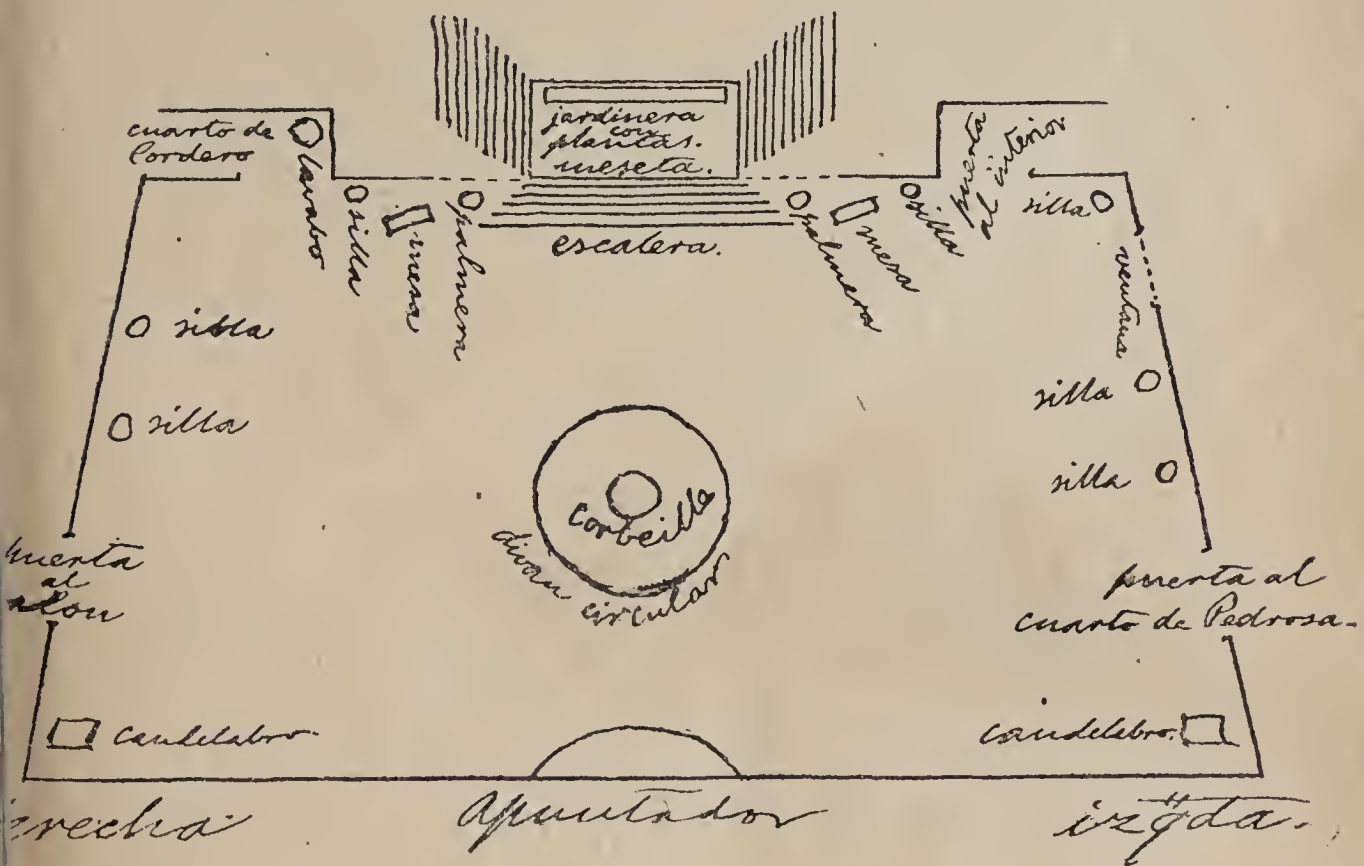 jardinera
con
plantas.
meseta.
cuarto de
Cordero
lavabo
silla
mesa
palmera
escalera.
palmera
mesa
silla
puerta
al interior
silla
ventana
silla
silla
silla
silla
corbeille
divan circular
puerta
al
salon
puerta al
cuarto de Pedrosa.
candelabro.
candelabro.
derecha
apuntador
izqda.